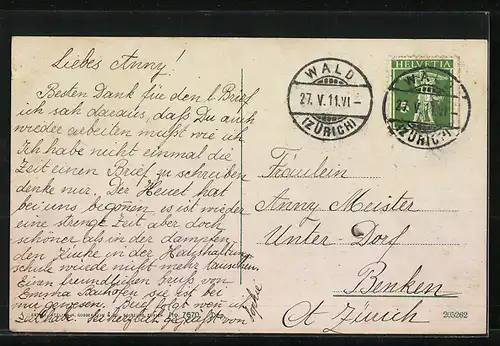 Liebes Anny!
Besten Dank für den l. Brief
ich sah daraus, daß Du auch
wieder arbeiten mußt wie ich
Ich habe nicht einmal die
Zeit einen Brief zu schreiben
denke nur. Der Heuet hat
bei uns begonnen es ist wieder
eine strenge Zeit aber doch
schöner als in der dampfen
den Küche in der Haushaltung
schule würde nicht mehr tauschen.
Einen freundlichen Gruß von
Emma Bachofen sie ist bei
mir gewesen. Seid
gegrüßt von
Sophie
No 7670
HELVETIA
WALD
27. V. 11. VI-
(ZÜRICH)
WALD
27. V.
(ZÜRICH)
Fräulein
Anny Meister
Unter-Dorf
Benken
Ct Zürich
205262